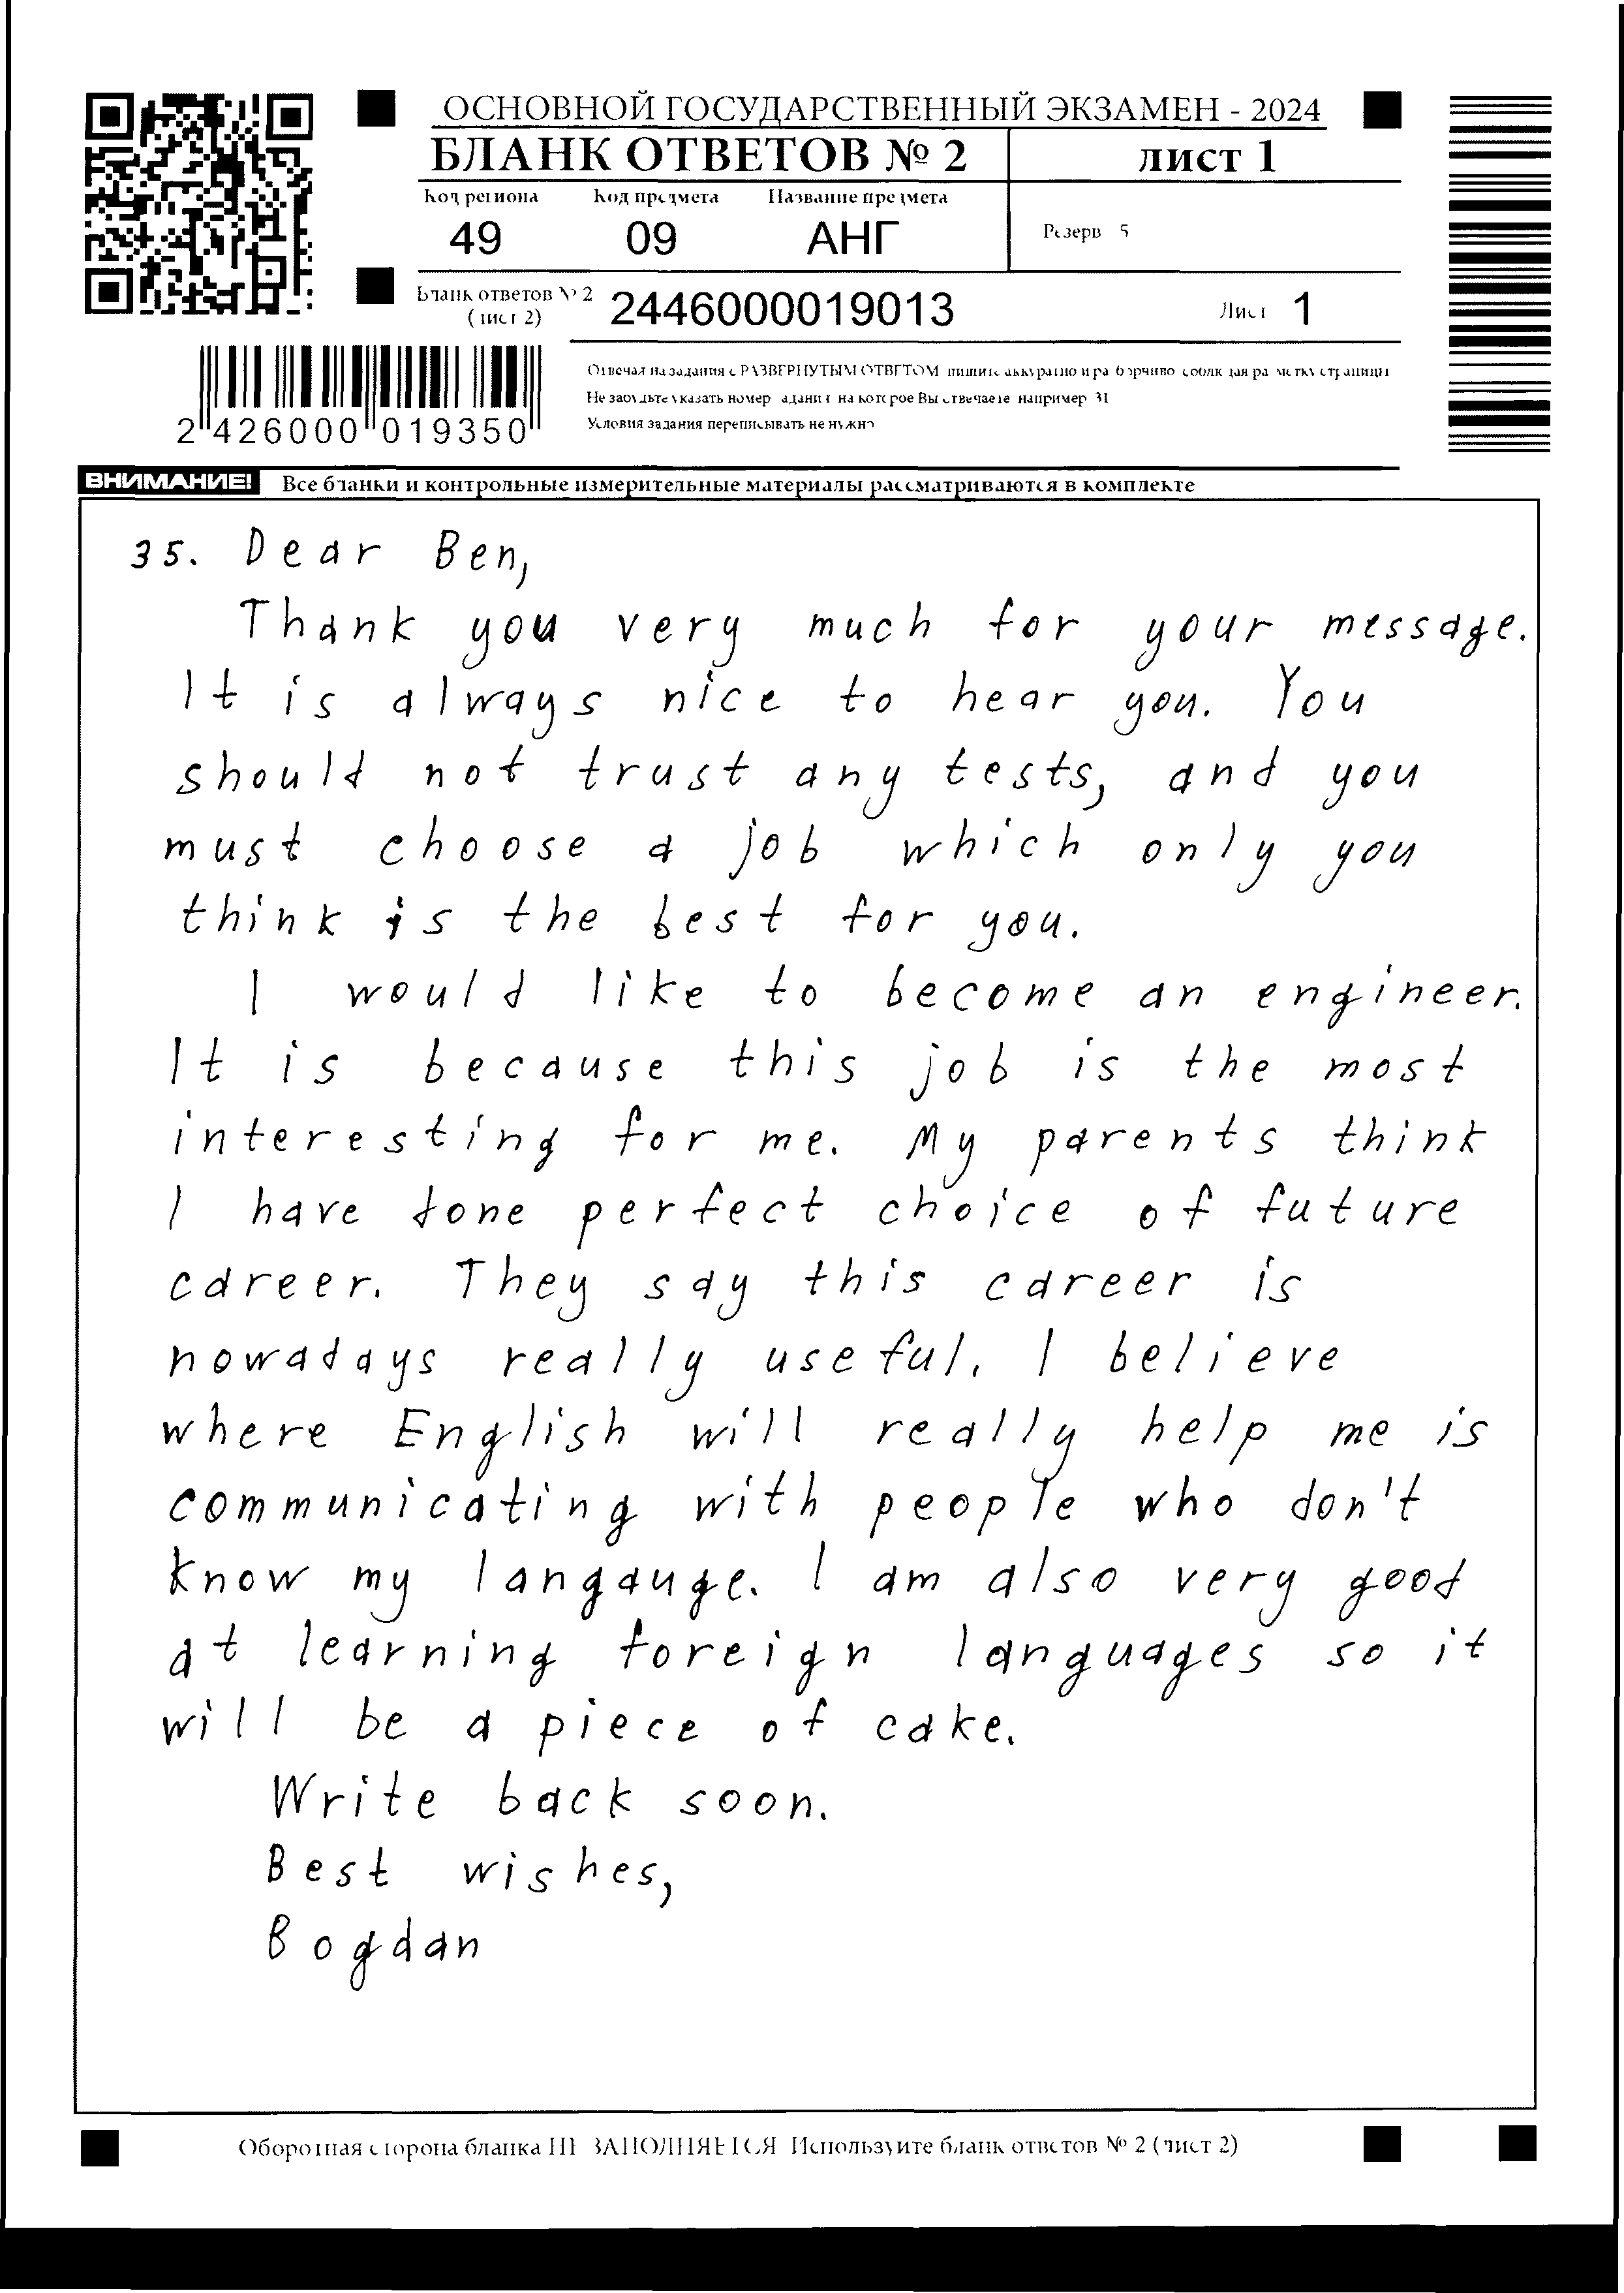 ОСНОВНОЙ ГОСУДАРСТВЕННЫЙ ЭКЗАМЕН - 2024
БЛАНК ОТВЕТОВ № 2
лист 1
Код региона Код предмета Название предмета
49 09 АНГ
Резерв 5
Бланк ответов № 2
(лист 2)
2446000019013
Лист 1
2 426000 019350
Отвечая на задания с РАЗВЕРНУТЫМ ОТВЕТОМ пишите аккуратно и разборчиво соблюдая разметку страницы
Не забудьте указать номер задания на которое Вы отвечаете например 31
Условия задания переписывать не нужно
ВНИМАНИЕ! Все бланки и контрольные измерительные материалы рассматриваются в комплекте
35. Dear Ben,
Thank you very much for your message.
It is always nice to hear you. You
should not trust any tests, and you
must choose a job which only you
think is the best for you.
I would like to become an engineer.
It is because this job is the most
interesting for me. My parents think
I have done perfect choice of future
career. They say this career is
nowadays really useful. I believe
where English will really help me is
communicating with people who don't
know my langauge. I am also very good
at learning foreign languages so it
will be a piece of cake.
Write back soon.
Best wishes,
Bogdan
Оборотная сторона бланка НЕ ЗАПОЛНЯЕТСЯ Используйте бланк ответов № 2 (лист 2)